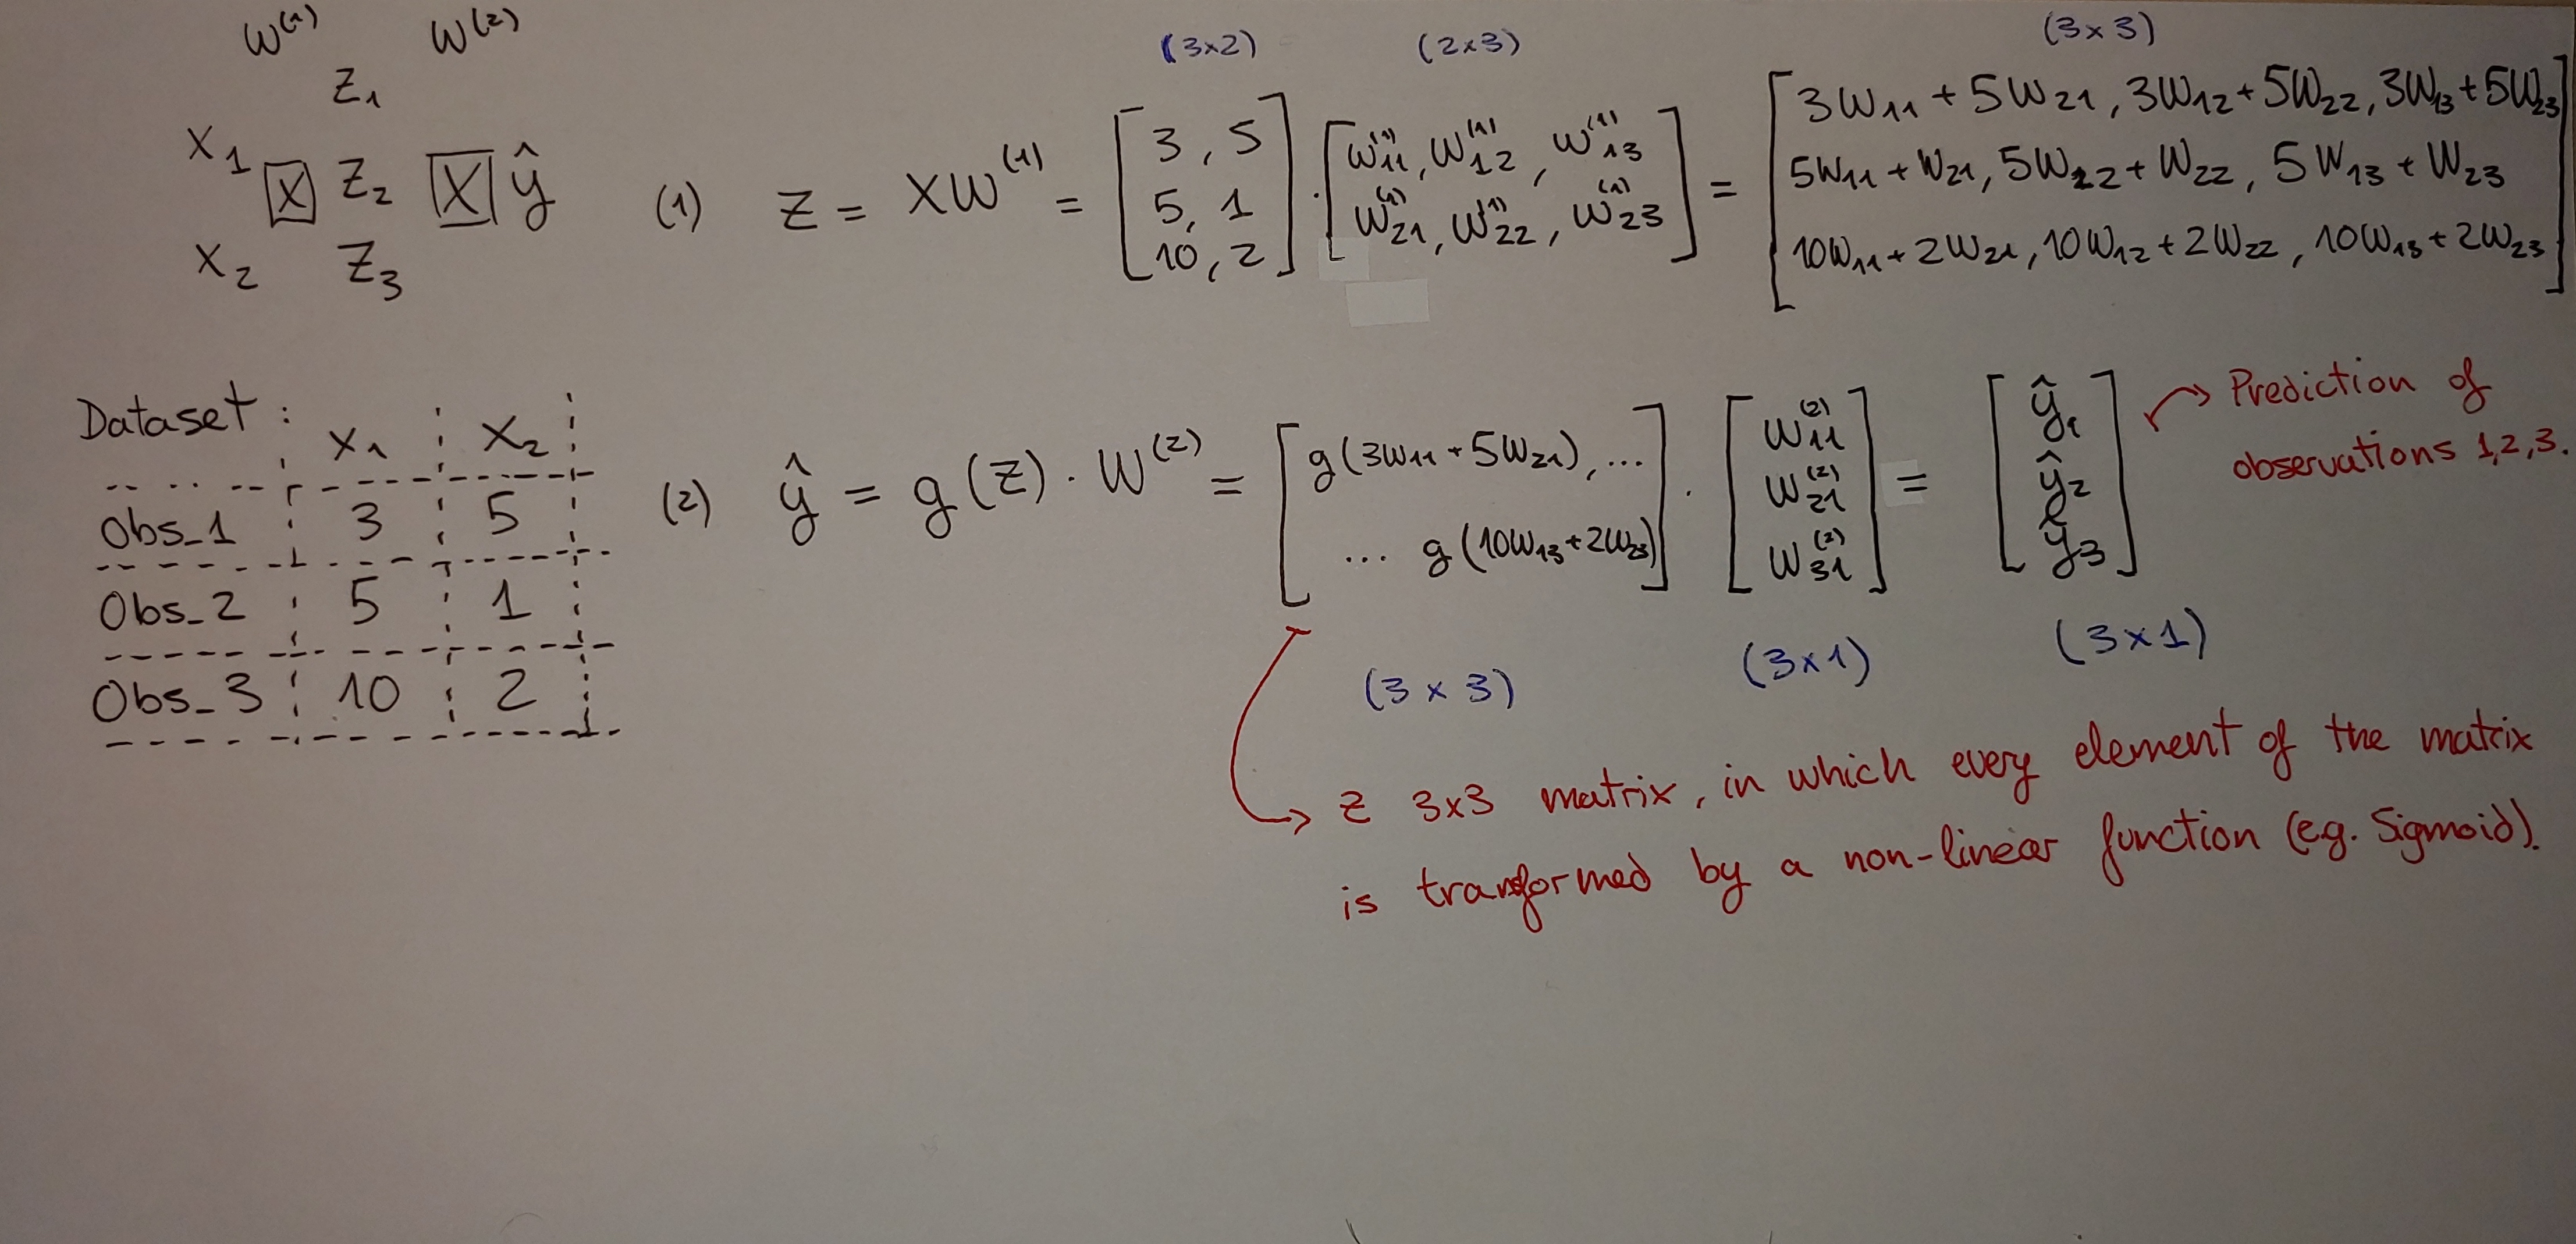 W⁽¹⁾ W⁽²⁾
z₁
x₁
X z₂ X ŷ
x₂ z₃
(3x2) (2x3) (3x3)
(1) z = XW⁽¹⁾ = [3, 5 5, 1 10, 2] · [W₁₁⁽¹⁾, W₁₂⁽¹⁾, W₁₃⁽¹⁾ W₂₁⁽¹⁾, W₂₂⁽¹⁾, W₂₃⁽¹⁾] =
3W₁₁ + 5W₂₁, 3W₁₂ + 5W₂₂, 3W₁₃ + 5W₂₃
5W₁₁ + W₂₁, 5W₁₂ + W₂₂, 5W₁₃ + W₂₃
10W₁₁ + 2W₂₁, 10W₁₂ + 2W₂₂, 10W₁₃ + 2W₂₃
Dataset:
x₁ x₂
Obs_1 3 5
Obs_2 5 1
Obs_3 10 2
(2) ŷ = g(z) · W⁽²⁾ = [g(3W₁₁ + 5W₂₁), ... ... g(10W₁₃ + 2W₂₃)] · [W₁₁⁽²⁾ W₂₁⁽²⁾ W₃₁⁽²⁾] = [ŷ₁ ŷ₂ ŷ₃]
Prediction of
observations 1,2,3.
(3x3) (3x1) (3x1)
z 3x3 matrix, in which every element of the matrix
is transformed by a non-linear function (e.g. Sigmoid).